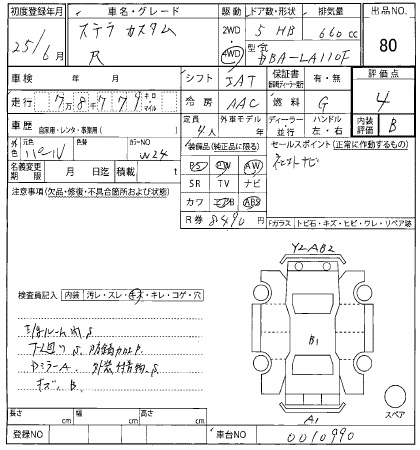 初度登録年月 車名・グレード 駆動 ドア数・形状 排気量 出品NO.
25年/6月 ステラ カスタム R 2WD 4WD 5 HB 660 cc 80
型式 DBA-LA110F
車検 年 月 シフト IAT 保証書 新車時ディーラー発行 有・無 評価点
走行 7万8千779 キロ マイル 冷房 AAC 燃料 G 4
車歴 自家用・レンタ・事業用( ) 定員 4人 外車モデル 年 ディーラー 並行 ハンドル 左・右 内装評価 B
外色 元色 パール 色替 カラーNO W24 装備品(純正品に限る) セールスポイント(正常に作動するもの)
名義変更期限 月 日迄 積載 t PS PW AW ナビ
注意事項(欠品・修復・不具合箇所および状態) SR TV ナビ
カワ エアB ABS
R券 8490円 Fガラス トビ石・キズ・ヒビ・ワレ・リペア跡
Y2AB2
検査員記入 内装 汚レ・スレ・キズ・キレ・コゲ・穴
B1
ミラーA
キズ、B
スペア
A1
長さ cm 幅 cm 高さ cm
登録NO 車台NO 0010990